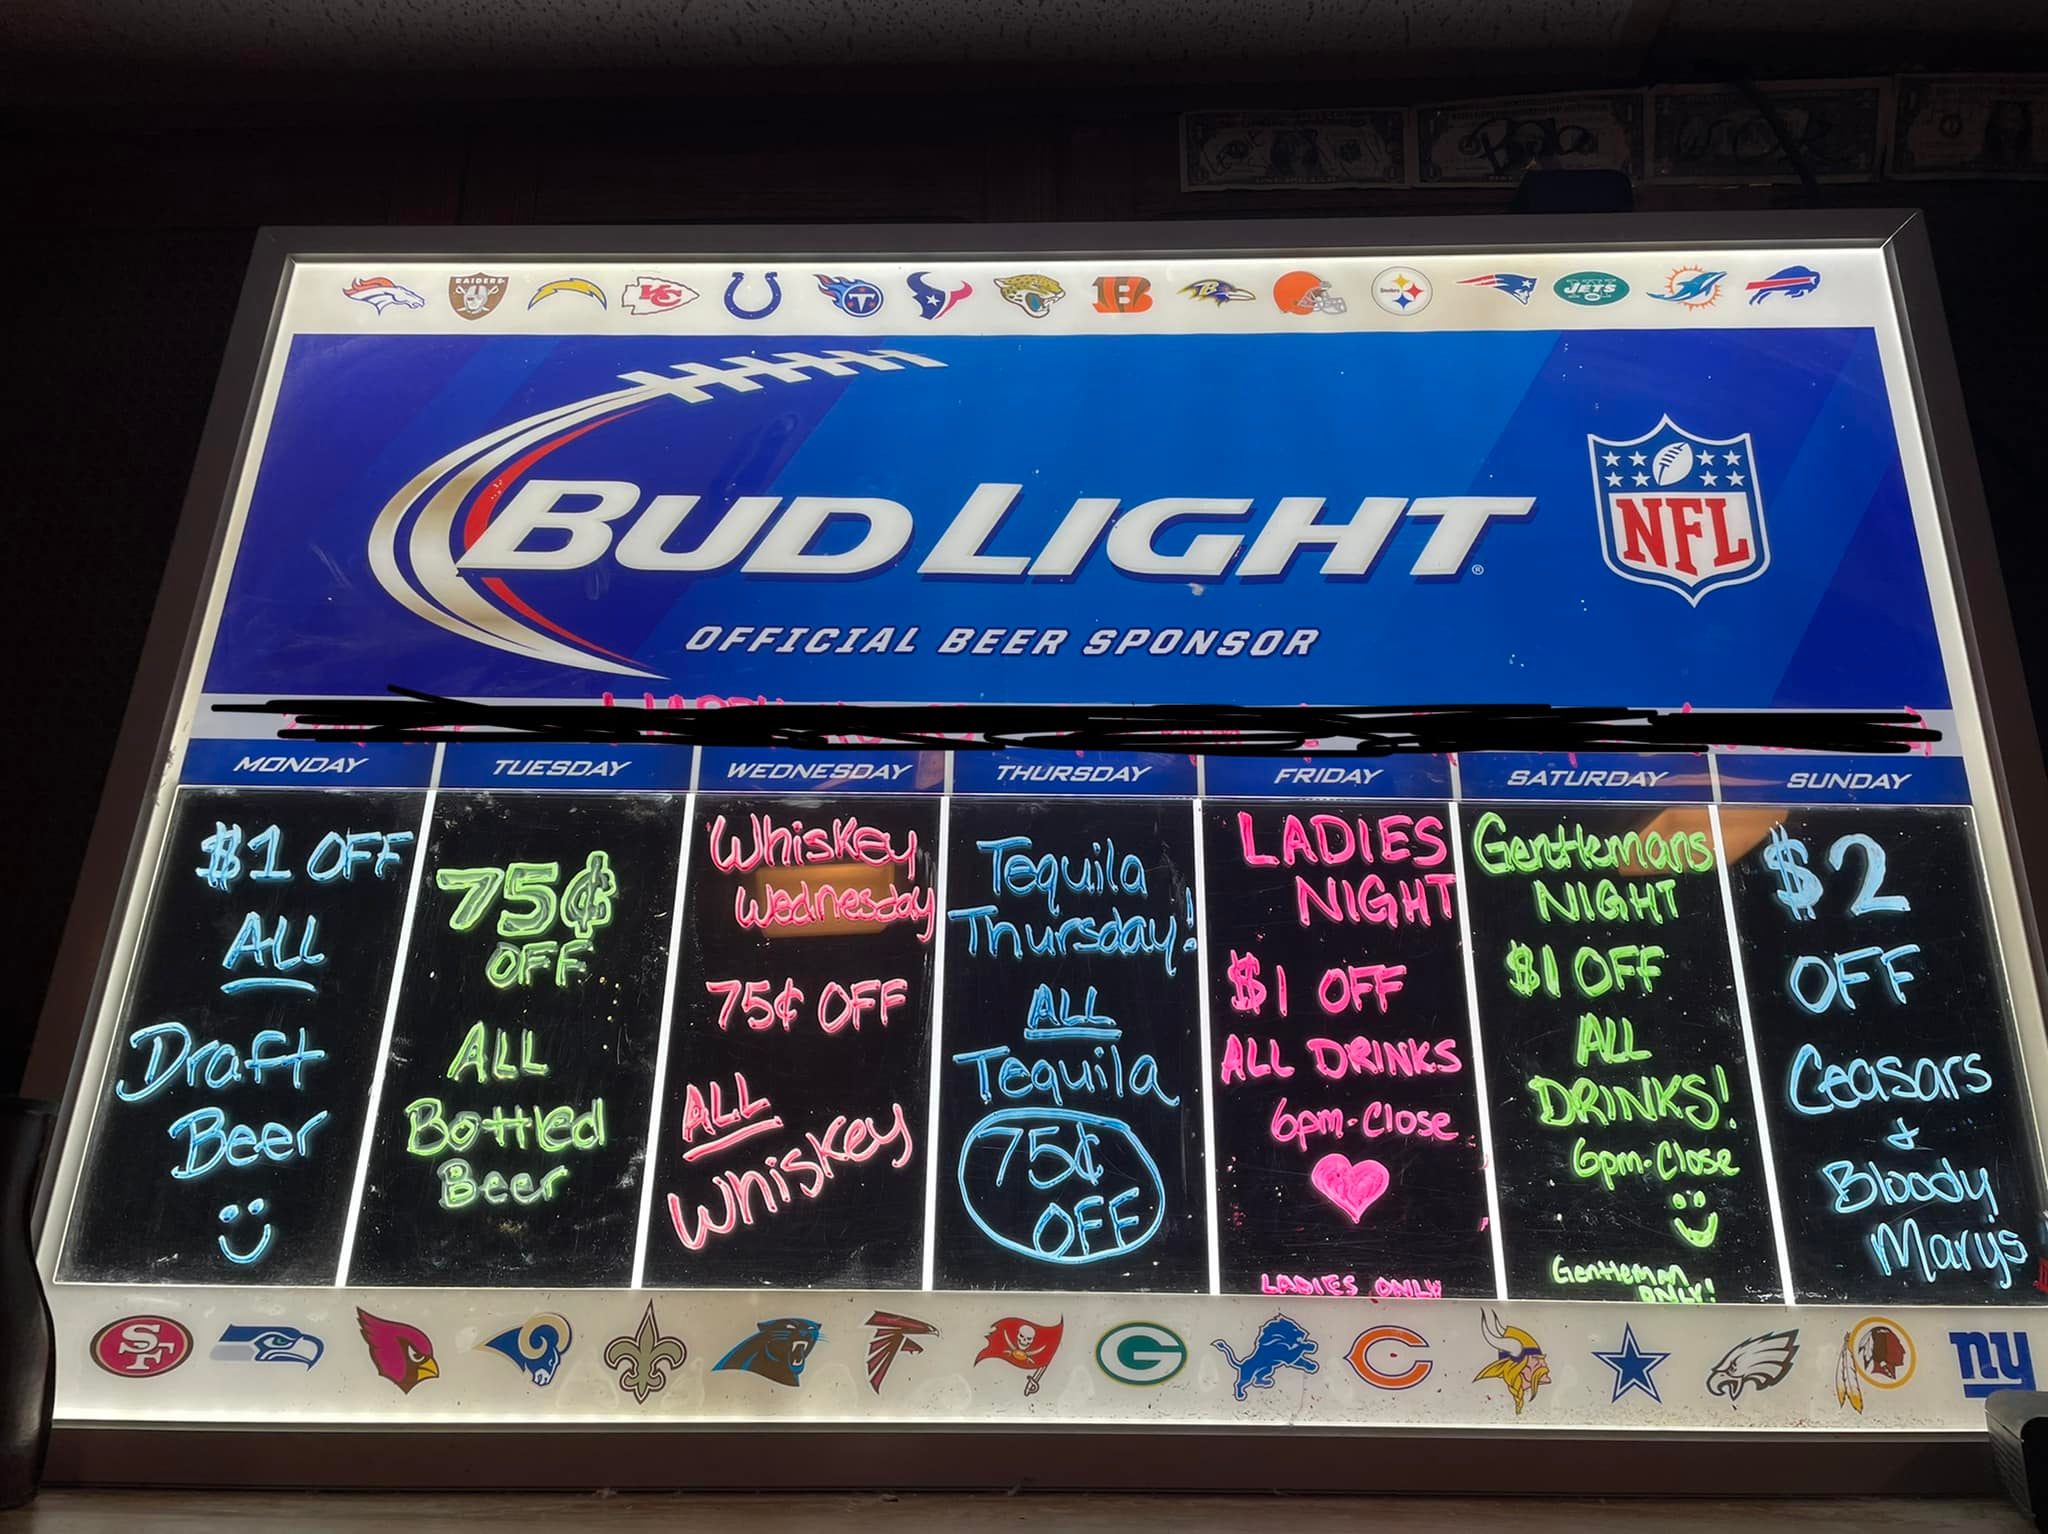 RAIDERS
KC
B
Steelers
JETS
BUD LIGHT
®
NFL
OFFICIAL BEER SPONSOR
MONDAY
$1 OFF
ALL
Draft
Beer
TUESDAY
75¢
OFF
ALL
Bottled
Beer
WEDNESDAY
Whiskey
Wednesday
75¢ OFF
ALL
Whiskey
THURSDAY
Tequila
Thursday!
ALL
Tequila
75¢
OFF
FRIDAY
LADIES
NIGHT
$1 OFF
ALL DRINKS
6pm-Close
LADIES ONLY
SATURDAY
Gentlemans
NIGHT
$1 OFF
ALL
DRINKS!
6pm-Close
Gentleman
ONLY!
SUNDAY
$2
OFF
Ceasars
&
Bloody
Mary's
SF
G
C
ny